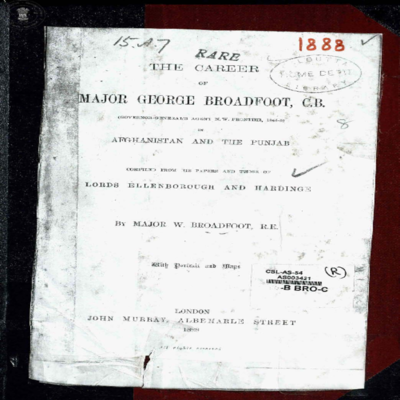 15.A.7
RARE
1888
THE CAREER
OF
MAJOR GEORGE BROADFOOT, C.B.
IN
AFGHANISTAN AND THE PUNJAB
COMPILED FROM HIS PAPERS AND THOSE OF
LORDS ELLENBOROUGH AND HARDINGE
BY MAJOR W. BROADFOOT, R.E.
With Portrait and Maps
CSL-AS-54
AS003421
-B BRO-C
(R)
8
LONDON
JOHN MURRAY, ALBEMARLE STREET
All rights reserved